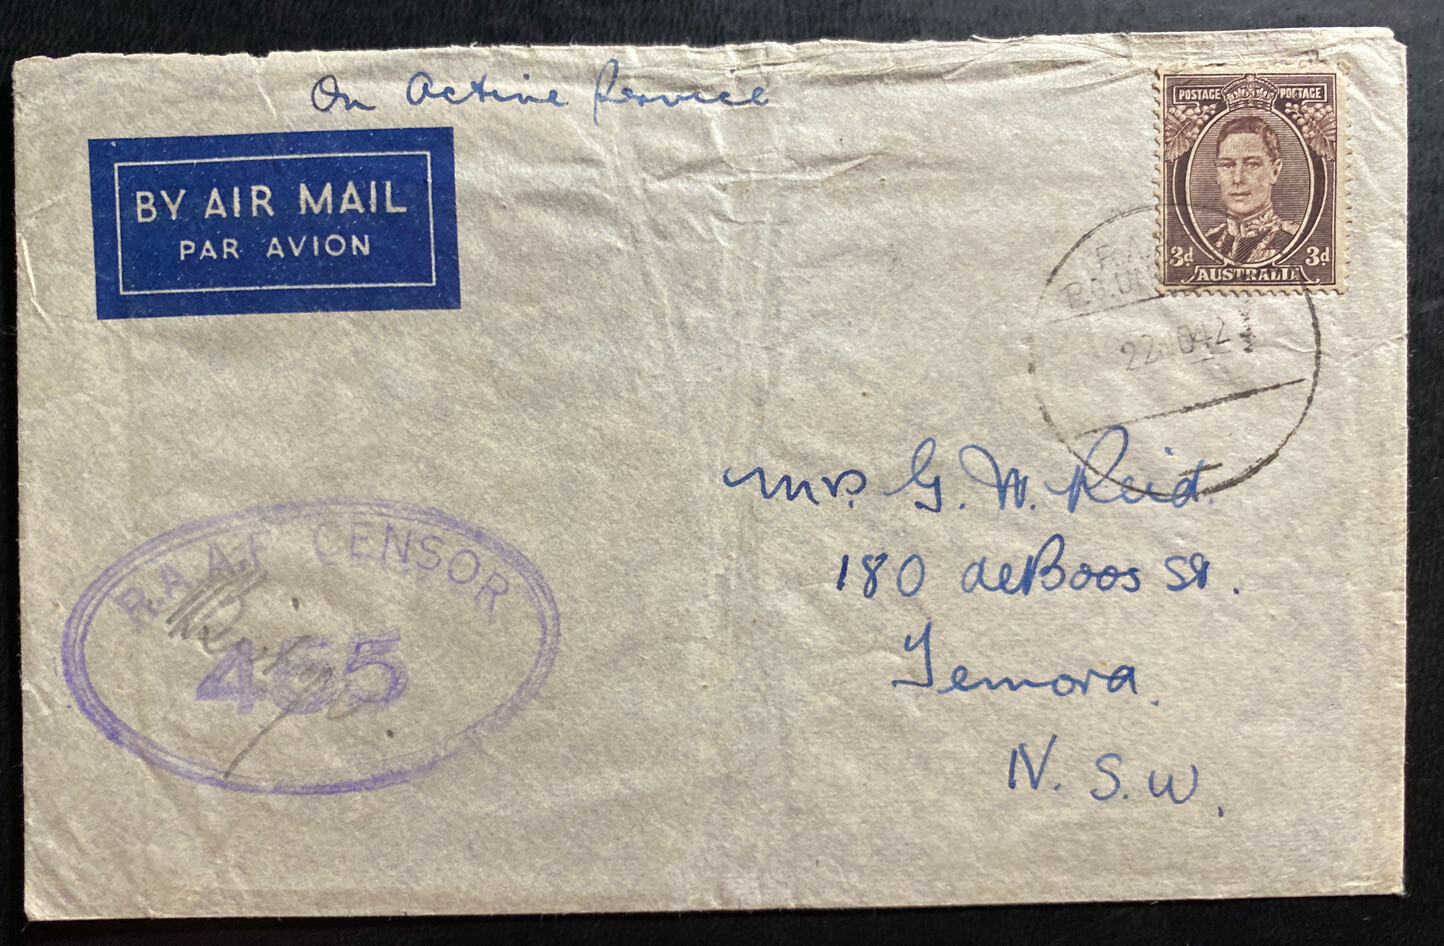 On Active Service
BY AIR MAIL
PAR AVION
POSTAGE POSTAGE
3d 3d
AUSTRALIA
22 NO 42
Mrs. G. W. Reid.
180 deBoos St.
Temora.
N. S. W.
R.A.A.F. CENSOR
465